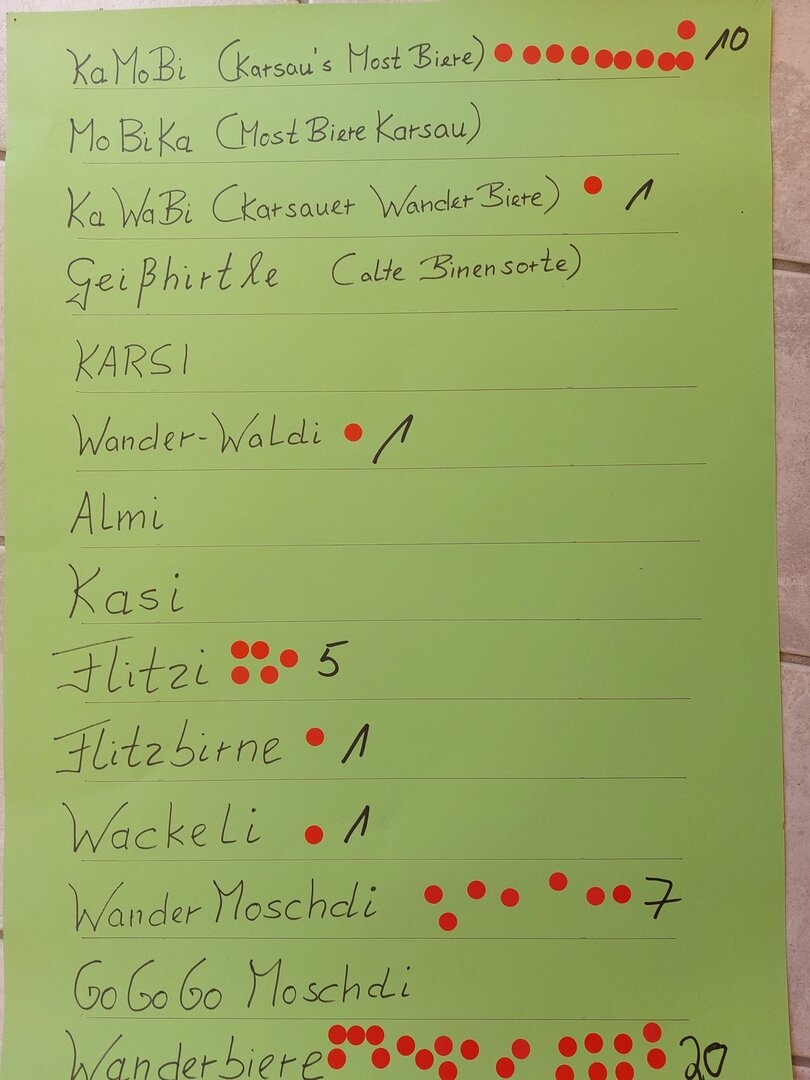 KaMoBi (Karsau's Most Biere) 10
MoBiKa (Most Biere Karsau)
KaWaBi (Karsauer Wander Biere) 1
Geißhirtle (alte Binensorte)
KARSI
Wander-Waldi 1
Almi
Kasi
Flitzi 5
Flitzbirne 1
Wackeli 1
Wander Moschdi 7
GoGoGo Moschdi
Wanderbiere 20